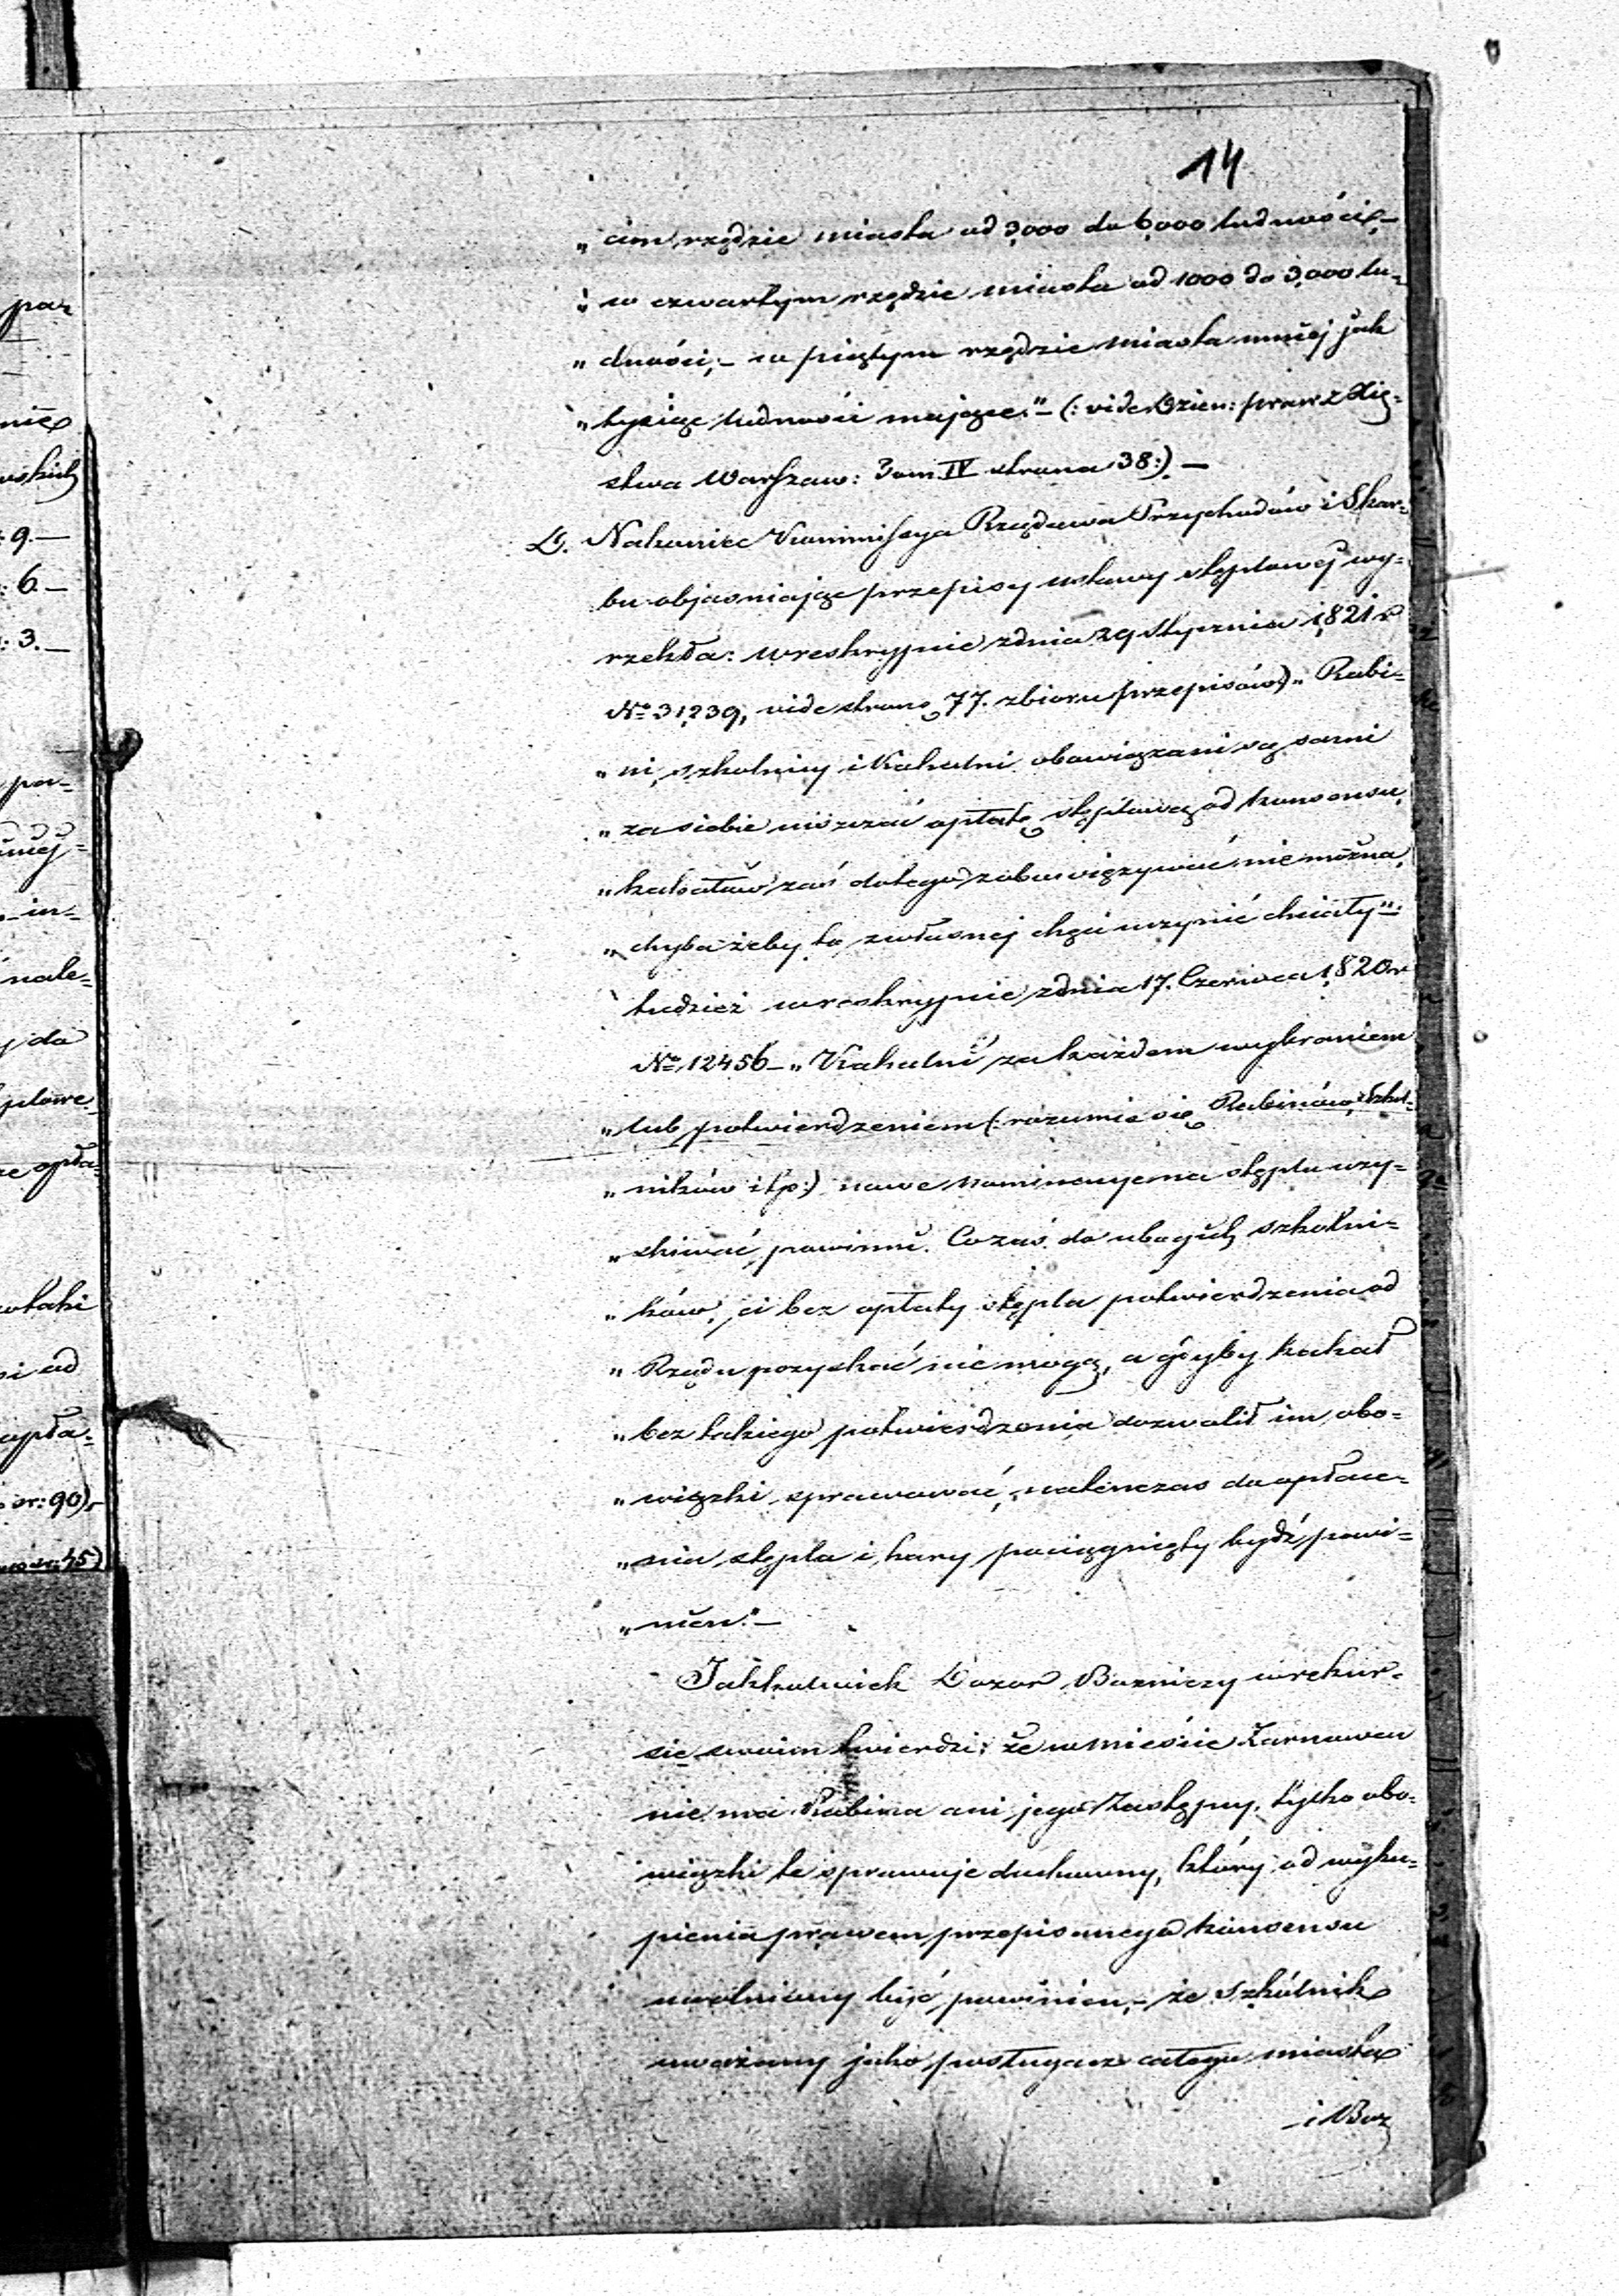 14
„cim rzędzie miasta od 3,000 do 6,000 ludności,–
„w czwartym rzędzie miasta od 1000 do 3,000 lu-
„dności,– w piątym rzędzie miasta mniéj jak
„tysiąc ludności mające."– (: vide Dzien: praw z Xię-
stwa Warszaw: Tom IV strona 38:).–
D. Nakoniec Kommissya Rządowa Przychodów i Skar-
bu objasniając przepisy ustawy stęplowéj wy-
rzekła: w reskrypcie z dnia 29 Stycznia 1821 r
No 31,239, vide stronę 77. zbioru przepisów) „Rabi-
„ni, szkolnicy i Kahalni obowiązani są sami
„za siebie uiszczać opłatę stęplową od konsensu,
„kahałów zaś do tego zobowiązywać nie można,
„chyba żeby to z własnej chęci uczynić chciały":
tudzież w reskrypcie z dnia 17. Czerwca 1820 r
No 12456– „Kahalni za każdem wybraniem
„lub potwierdzeniem (: rozumie się Rabinów, Szkol-
„ników itp:) nowe nominacye na stęplu uzy-
„skiwać powinni. Co zaś do ubogich szkolni-
„ków, ci bez opłaty stępla potwierdzenia od
„Rządu pozyskać nie mogą, a gdyby kahał
„bez takiego potwierdzenia dozwolił im obo-
„wiązki sprawować, natenczas do opłace-
„nia stępla i kary pociągnięty bydź powi-
„nien."–
Jakkolwiek Dozor Bozniczy w rekur-
sie swoim twierdzi: że w mieście Żarnowcu
nie ma Rabina ani jego Zastępcy, tylko obo-
wiązki te sprawuje duchowny, który od wyku-
pienia prawem przepisanego konsensu
uwolniony być powinien,– że szkólnik
uważany jako posługacz całego miasta
i Boż
par
nie
wskich
: 9.–
: 6.–
: 3.–
po-
in-
nale-
y do
plowe
ce opła-
i od
opła-